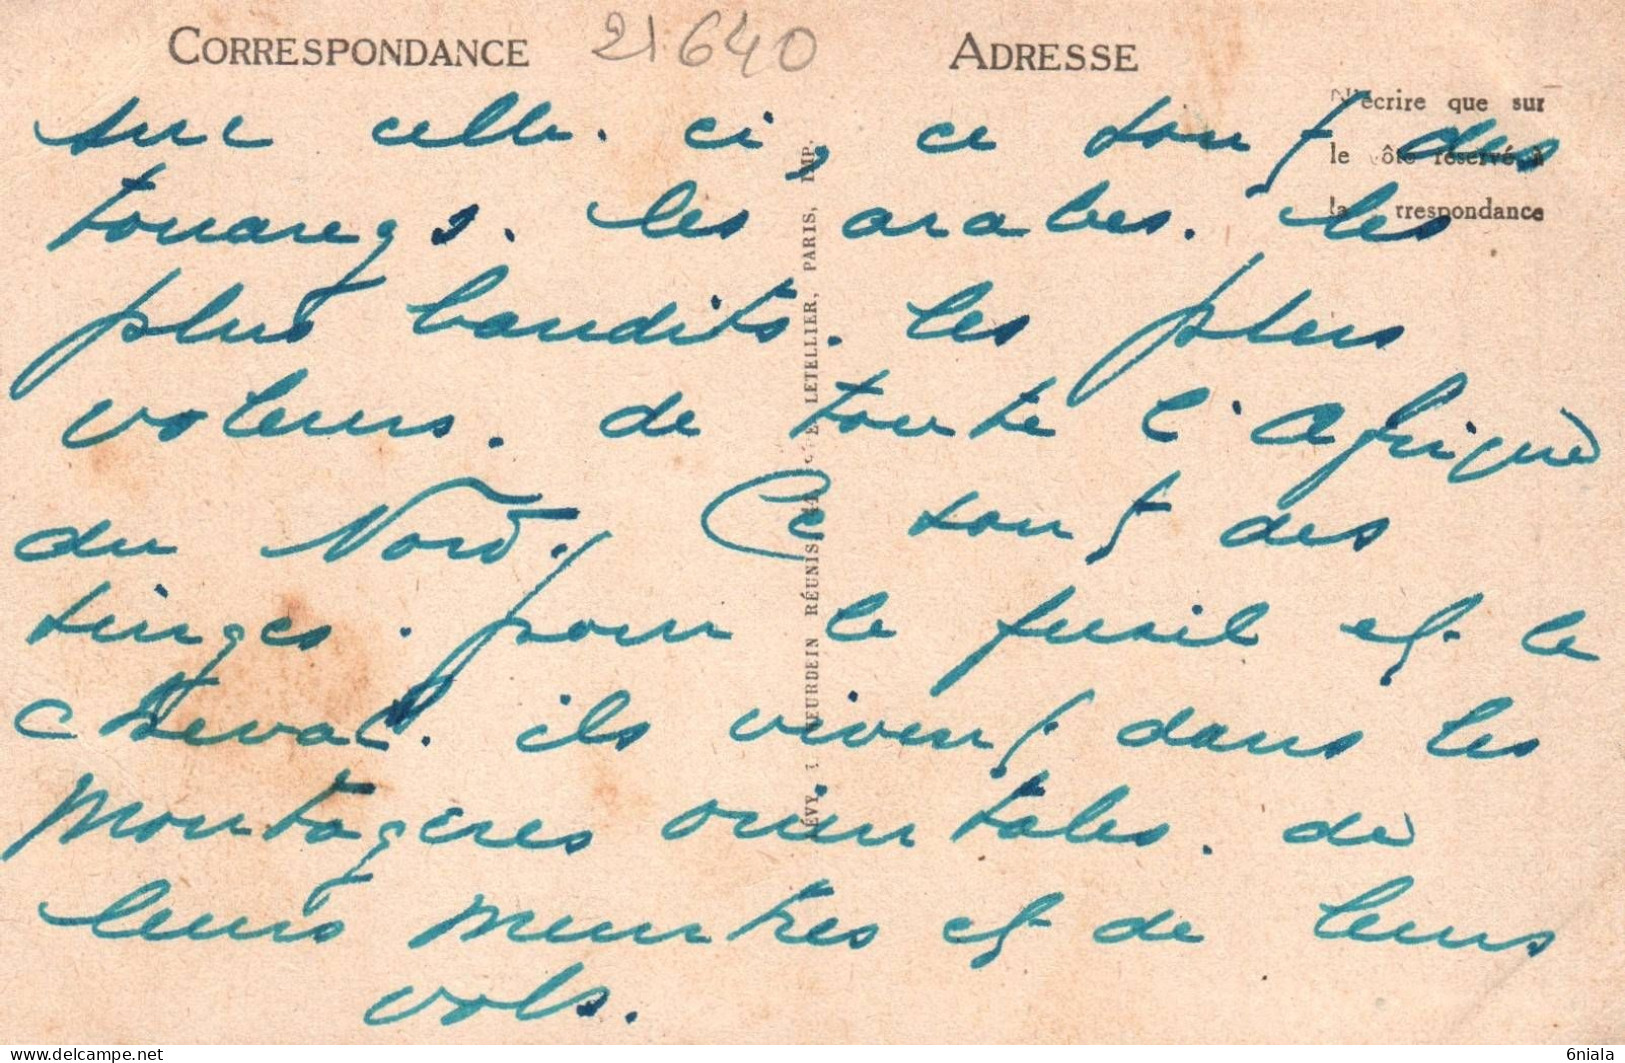 CORRESPONDANCE 21640 ADRESSE
N'écrire que sur
le côté réservé à
la correspondance
sur celle. ci, ce sont des
touaregs. les arabes. les
plus bandits. les plus
voleurs. de toute l'Afrique
du Nord. Ce sont des
singes. pour le fusil et le
cheval. ils vivent dans les
montagnes orientales. de
leurs meurtres et de leurs
vols.
LÉVY & NEURDEIN RÉUNIS, 44, LETELLIER, PARIS, IMP.
Copyright www.delcampe.net
6niala